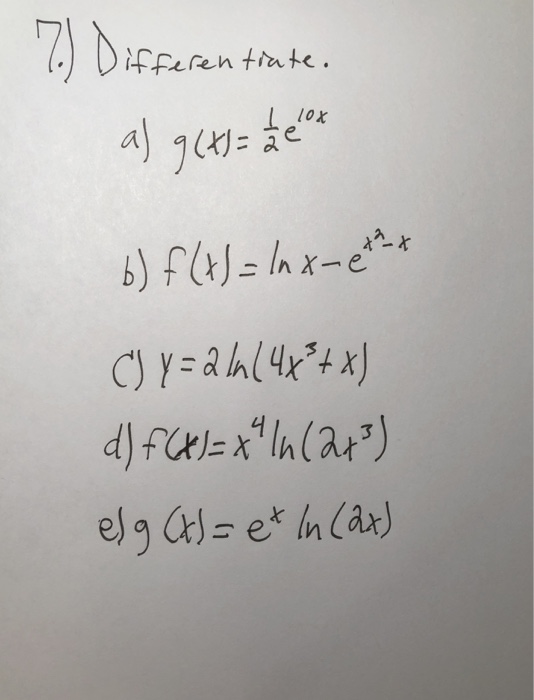 7.) Differentiate.
a) g(x) = 1/2 e^10x
b) f(x) = ln x - e^x²-x
c) y = 2 ln(4x³ + x)
d) f(x) = x⁴ ln(2x³)
e) g(x) = e^x ln(2x)